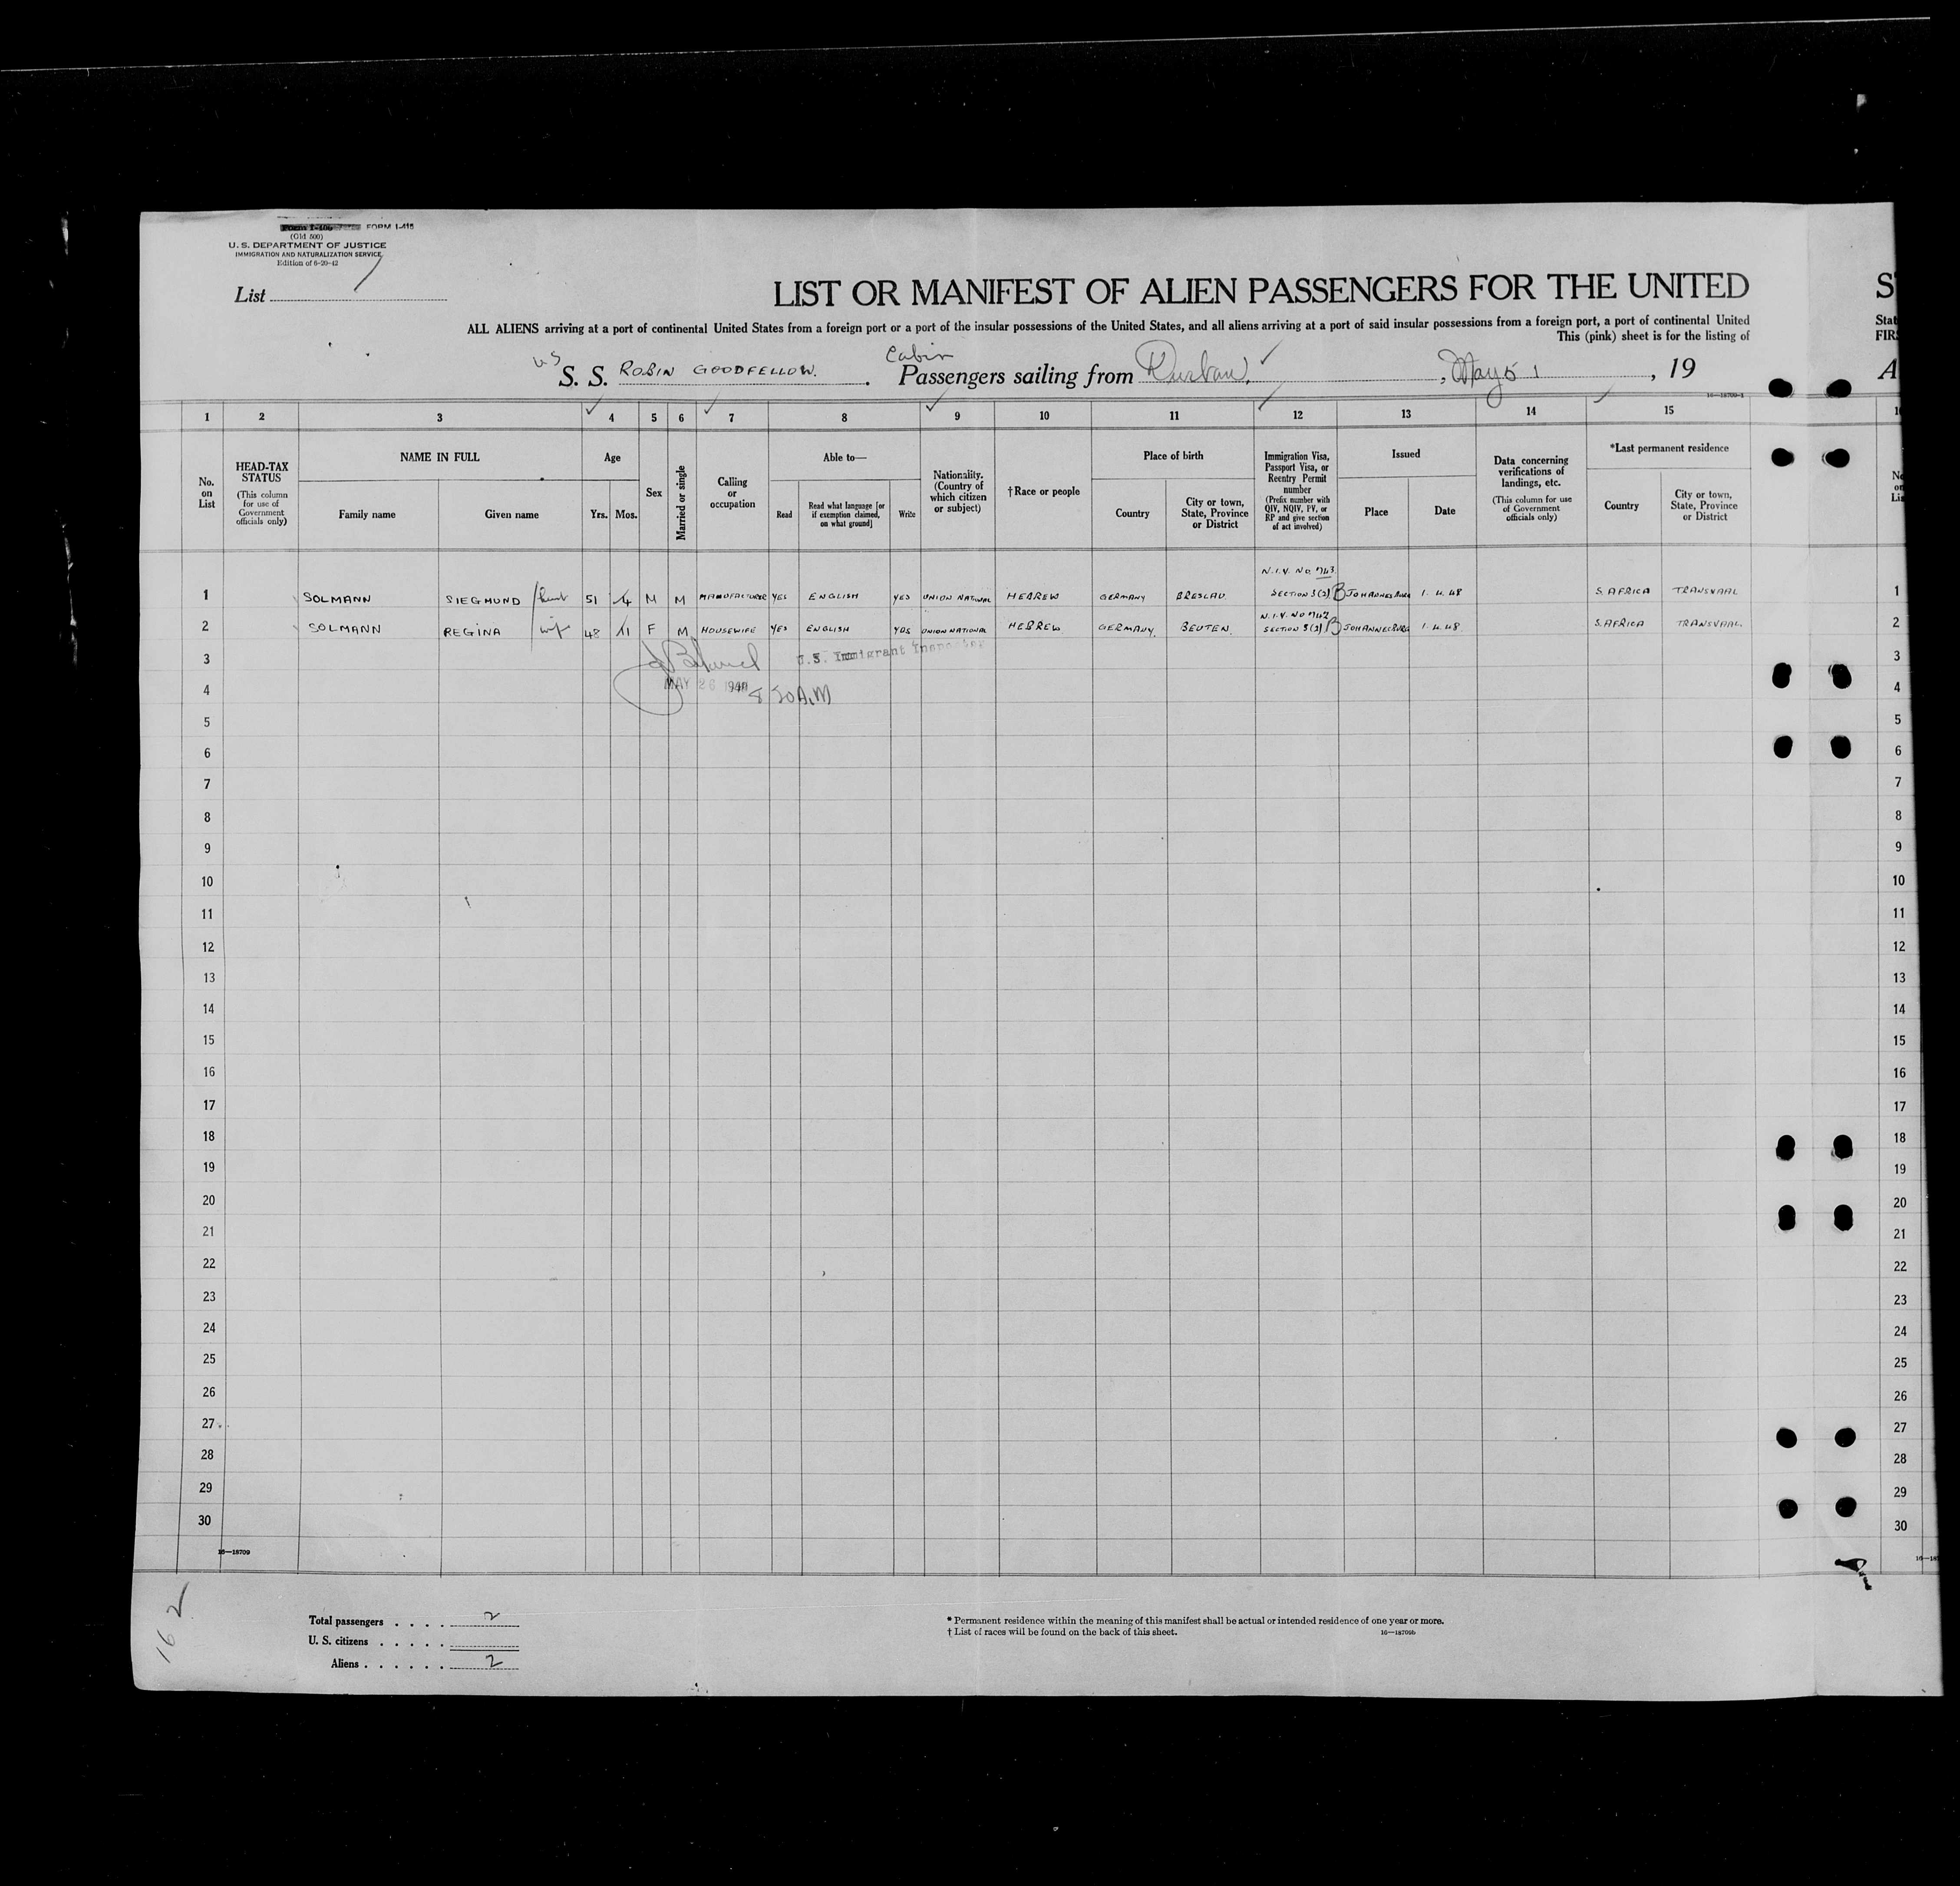 Form I-405 FORM I-415
(Old 500)
U. S. DEPARTMENT OF JUSTICE
IMMIGRATION AND NATURALIZATION SERVICE
Edition of 6-20-42
List 1
LIST OR MANIFEST OF ALIEN PASSENGERS FOR THE UNITED S
ALL ALIENS arriving at a port of continental United States from a foreign port or a port of the insular possessions of the United States, and all aliens arriving at a port of said insular possessions from a foreign port, a port of continental United Stat
This (pink) sheet is for the listing of FIR
US S. S. ROBIN GOODFELLOW. Cabin Passengers sailing from Durban, May 1, 19 A
16—18709-1
1 2 3 4 5 6 7 8 9 10 11 12 13 14 15
No. on List
HEAD-TAX STATUS
(This column for use of Government officials only)
NAME IN FULL
Family name
Given name
Age
Yrs. Mos.
Sex
Married or single
Calling or occupation
Able to—
Read
Read what language [or if exemption claimed, on what ground]
Write
Nationality. (Country of which citizen or subject)
†Race or people
Place of birth
Country
City or town, State, Province or District
Immigration Visa, Passport Visa, or Reentry Permit number
(Prefix number with QIV, NQIV, PV, or RP and give section of act involved)
Issued
Place
Date
Data concerning verifications of landings, etc.
(This column for use of Government officials only)
*Last permanent residence
Country
City or town, State, Province or District
N.I.V. No. 743.
1 SOLMANN SIEGMUND 51 4 M M MANUFACTURER YES ENGLISH YES UNION NATIONAL HEBREW GERMANY BRESLAU. SECTION 3(2) B JOHANNESBURG 1. 4. 48 S. AFRICA TRANSVAAL 1
N.I.V. No 742.
2 SOLMANN REGINA wife 48 11 F M HOUSEWIFE YES ENGLISH YES UNION NATIONAL HEBREW GERMANY. BEUTEN. SECTION 3(2) B JOHANNESBURG 1. 4. 48. S. AFRICA TRANSVAAL. 2
3 U.S. Immigrant Inspector 3
4 MAY 26 1948 8 50 A.M 4
5 5
6 6
7 7
8 8
9 9
10 10
11 11
12 12
13 13
14 14
15 15
16 16
17 17
18 18
19 19
20 20
21 21
22 22
23 23
24 24
25 25
26 26
27 27
28 28
29 29
30 30
16—18709
Total passengers 2
U. S. citizens
Aliens 2
16 2
* Permanent residence within the meaning of this manifest shall be actual or intended residence of one year or more.
† List of races will be found on the back of this sheet.
16—18709b